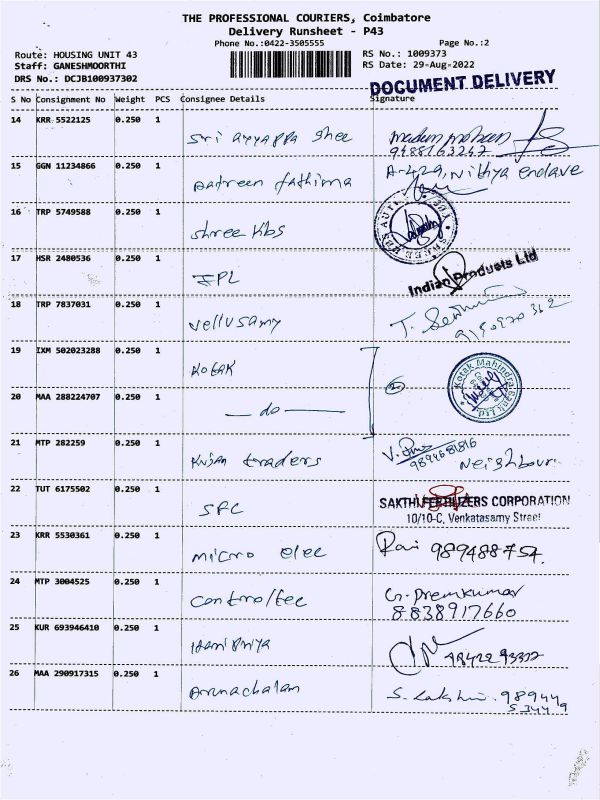 THE PROFESSIONAL COURIERS, Coimbatore
Delivery Runsheet - P43
Phone No.:0422-3505555
Page No.:2
Route: HOUSING UNIT 43
RS No.: 1009373
Staff: GANESHMOORTHI
RS Date: 29-Aug-2022
DRS No.: DCJB100937302
DOCUMENT DELIVERY
S No Consignment No Weight PCS Consignee Details Signature
14 KRR 5522125 0.250 1
Sri ayyappa
9488163247
15 GGN 11234866 0.250 1
fathima
A-429, Nithya enclave
16 TRP 5749588 0.250 1
Shree kbs
17 HSR 2480536 0.250 1
IPL
Indian Products Ltd
18 TRP 7837031 0.250 1
Vellusamy
19 IXM 502023288 0.250 1
Kotak
Kotak Mahindra Bank Ltd.
20 MAA 288224707 0.250 1
— do —
21 MTP 282259 0.250 1
traders
9894681816
Neighbour
22 TUT 6175502 0.250 1
SFC
SAKTHI FERTILIZERS CORPORATION
10/10-C, Venkatasamy Street
23 KRR 5530361 0.250 1
micro elec
989488754
24 MTP 3004525 0.250 1
Controltec
G. Premkumar
8838917660
25 KUR 693946410 0.250 1
Hari Priya
26 MAA 290917315 0.250 1
Arunachalam
S. Lakshmi. 989449
53449